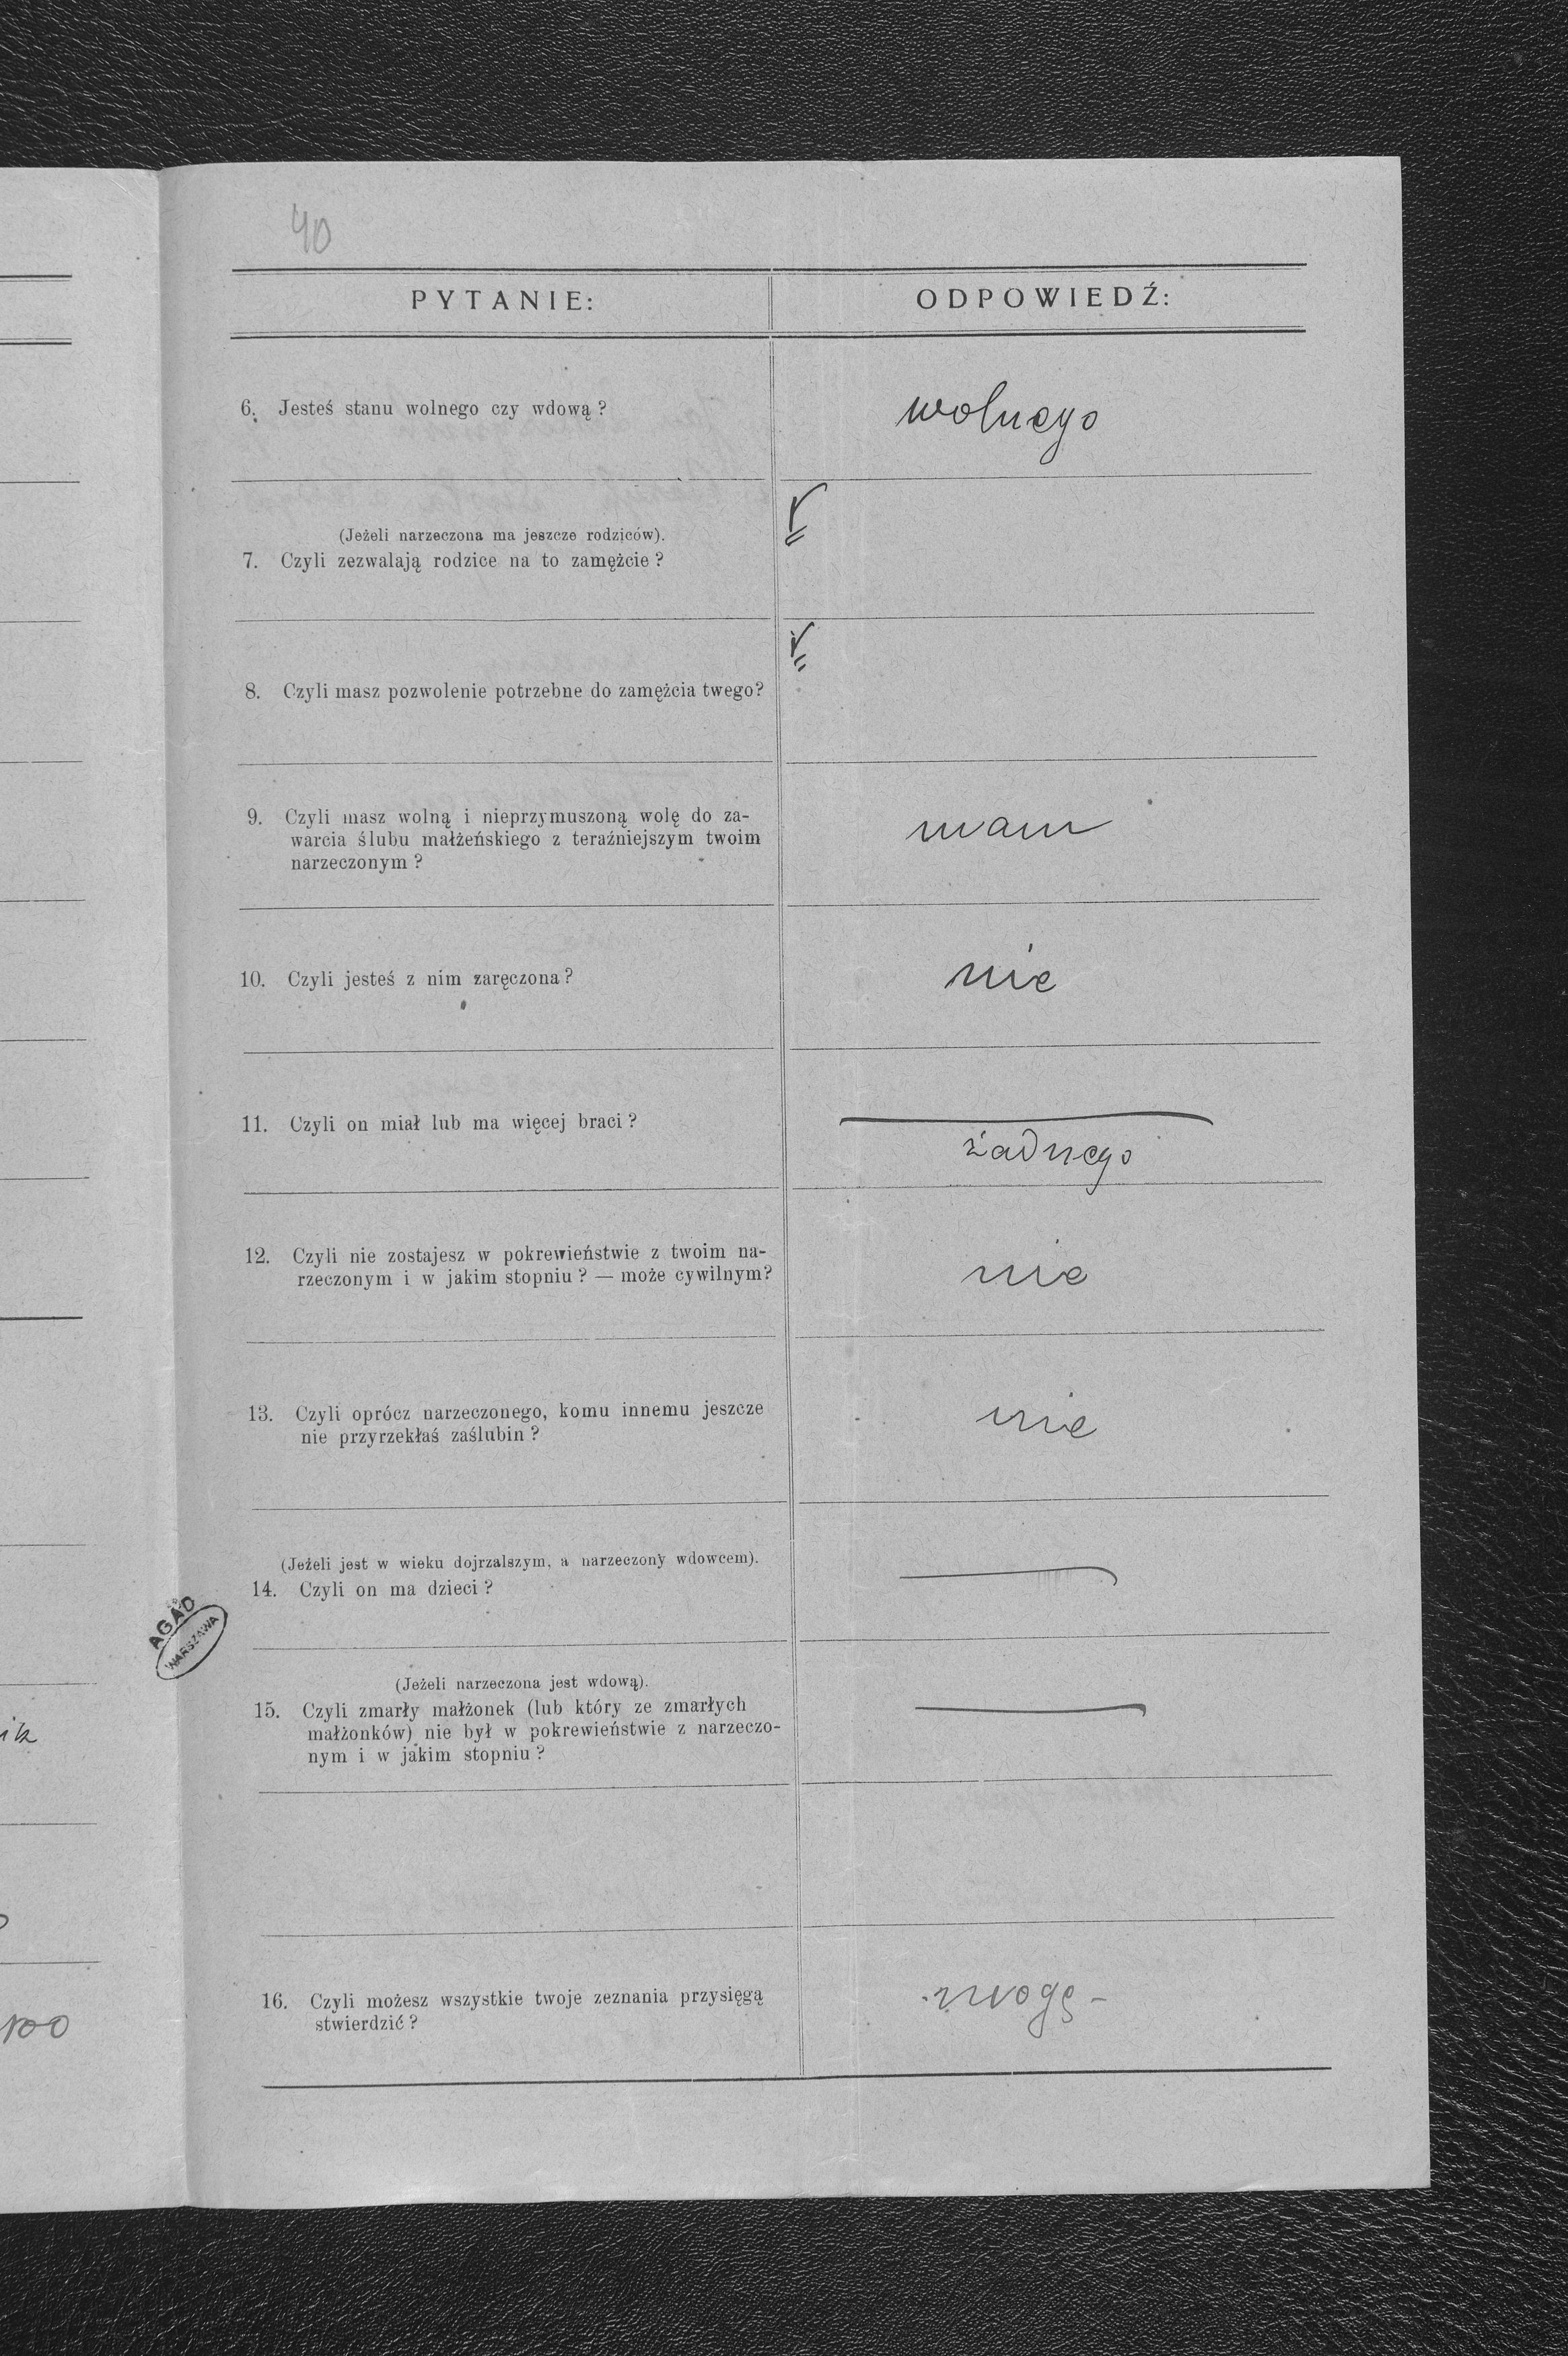 40
PYTANIE:
ODPOWIEDŹ:
6. Jesteś stanu wolnego czy wdową?
wolnego
(Jeżeli narzeczona ma jeszcze rodziców).
7. Czyli zezwalają rodzice na to zamężcie?
8. Czyli masz pozwolenie potrzebne do zamężcia twego?
9. Czyli masz wolną i nieprzymuszoną wolę do za-
warcia ślubu małżeńskiego z teraźniejszym twoim
narzeczonym?
mam
10. Czyli jesteś z nim zaręczona?
nie
11. Czyli on miał lub ma więcej braci?
żadnego
12. Czyli nie zostajesz w pokrewieństwie z twoim na-
rzeczonym i w jakim stopniu? — może cywilnym?
nie
13. Czyli oprócz narzeczonego, komu innemu jeszcze
nie przyrzekłaś zaślubin?
nie
(Jeżeli jest w wieku dojrzalszym, a narzeczony wdowcem).
14. Czyli on ma dzieci?
AGAD
WARSZAWA
(Jeżeli narzeczona jest wdową).
15. Czyli zmarły małżonek (lub który ze zmarłych
małżonków) nie był w pokrewieństwie z narzeczo-
nym i w jakim stopniu?
16. Czyli możesz wszystkie twoje zeznania przysięgą
stwierdzić?
mogę -